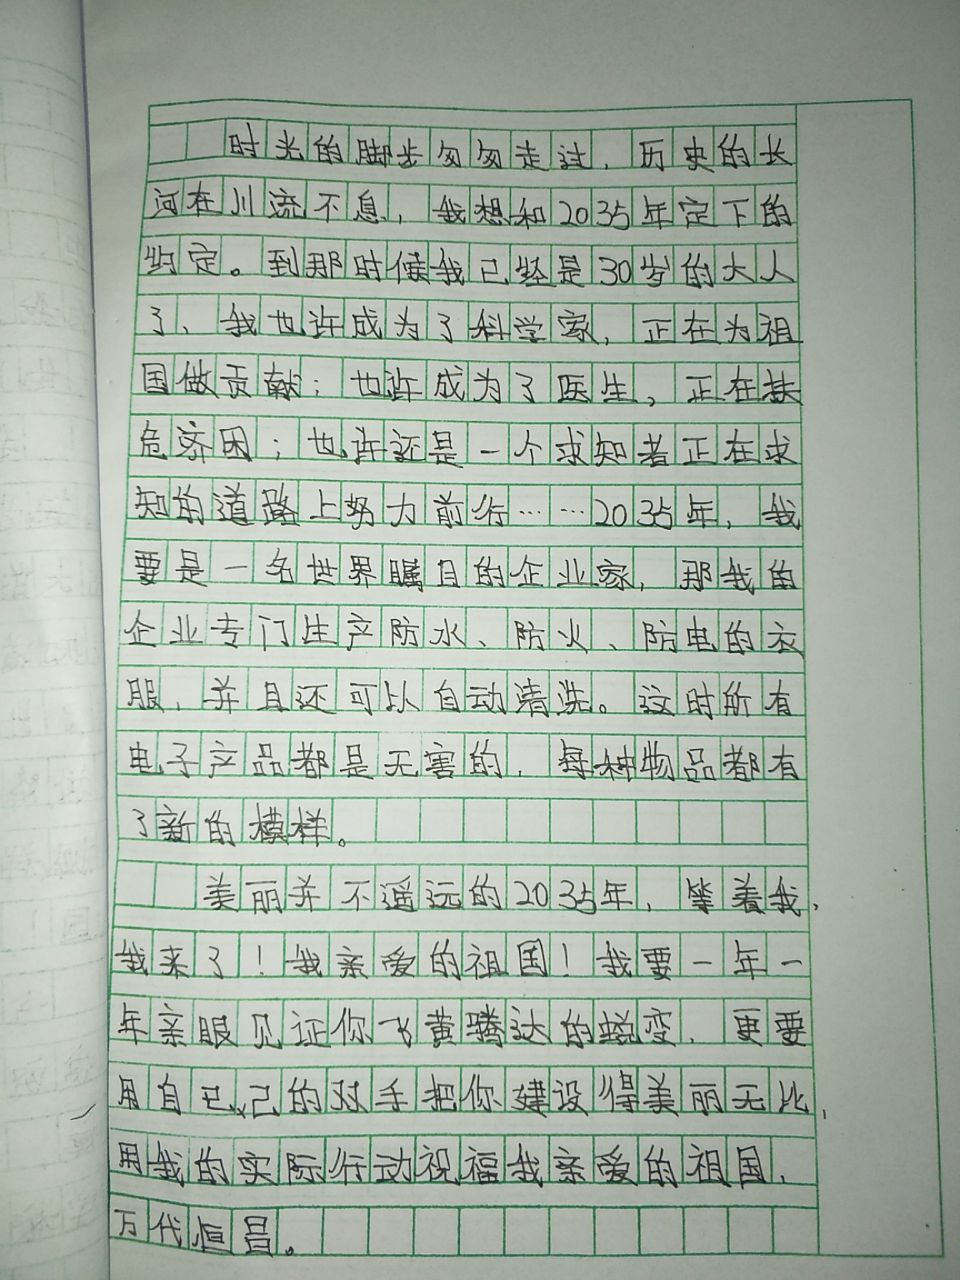 时光的脚步匆匆走过，历史的长
河在川流不息，我想和2035年定下的
约定。到那时候我已经是30岁的大人
了、我也许成为了科学家，正在为祖
国做贡献；也许成为了医生，正在扶
危济困；也许还是一个求知者正在求
知的道路上努力前行……2035年，我
要是一名世界瞩目的企业家，那我的
企业专门生产防水、防火、防电的衣
服，并且还可以自动清洗。这时所有
电子产品都是无害的，每种物品都有
了新的模样。
美丽并不遥远的2035年，等着我，
我来了！我亲爱的祖国！我要一年一
年亲眼见证你飞黄腾达的蜕变，更要
用自己的双手把你建设得美丽无比，
用我的实际行动祝福我亲爱的祖国，
万代恒昌。